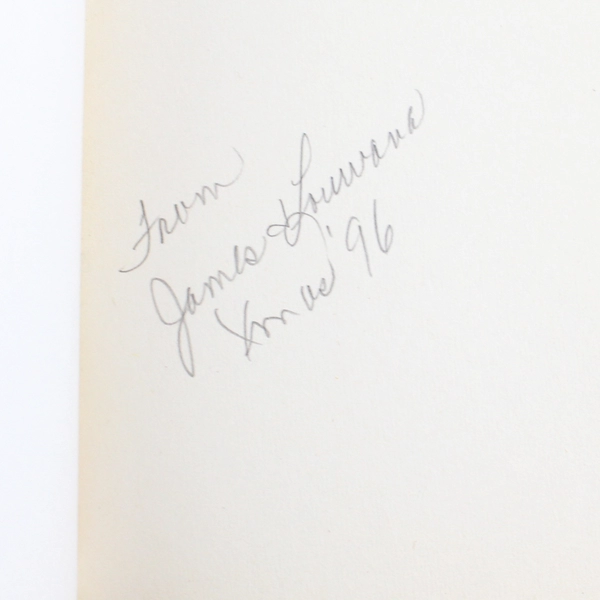 From
James & Louvana
Xmas '96